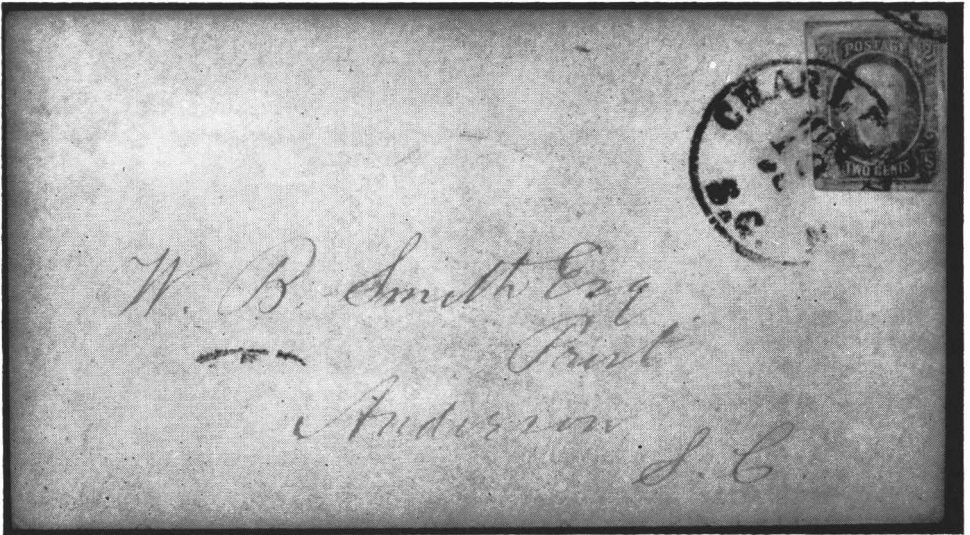 POSTAGE
TWO CENTS
CHARLE
S.C.
W. B. Smith Esq
Prest
Anderson
S. C.